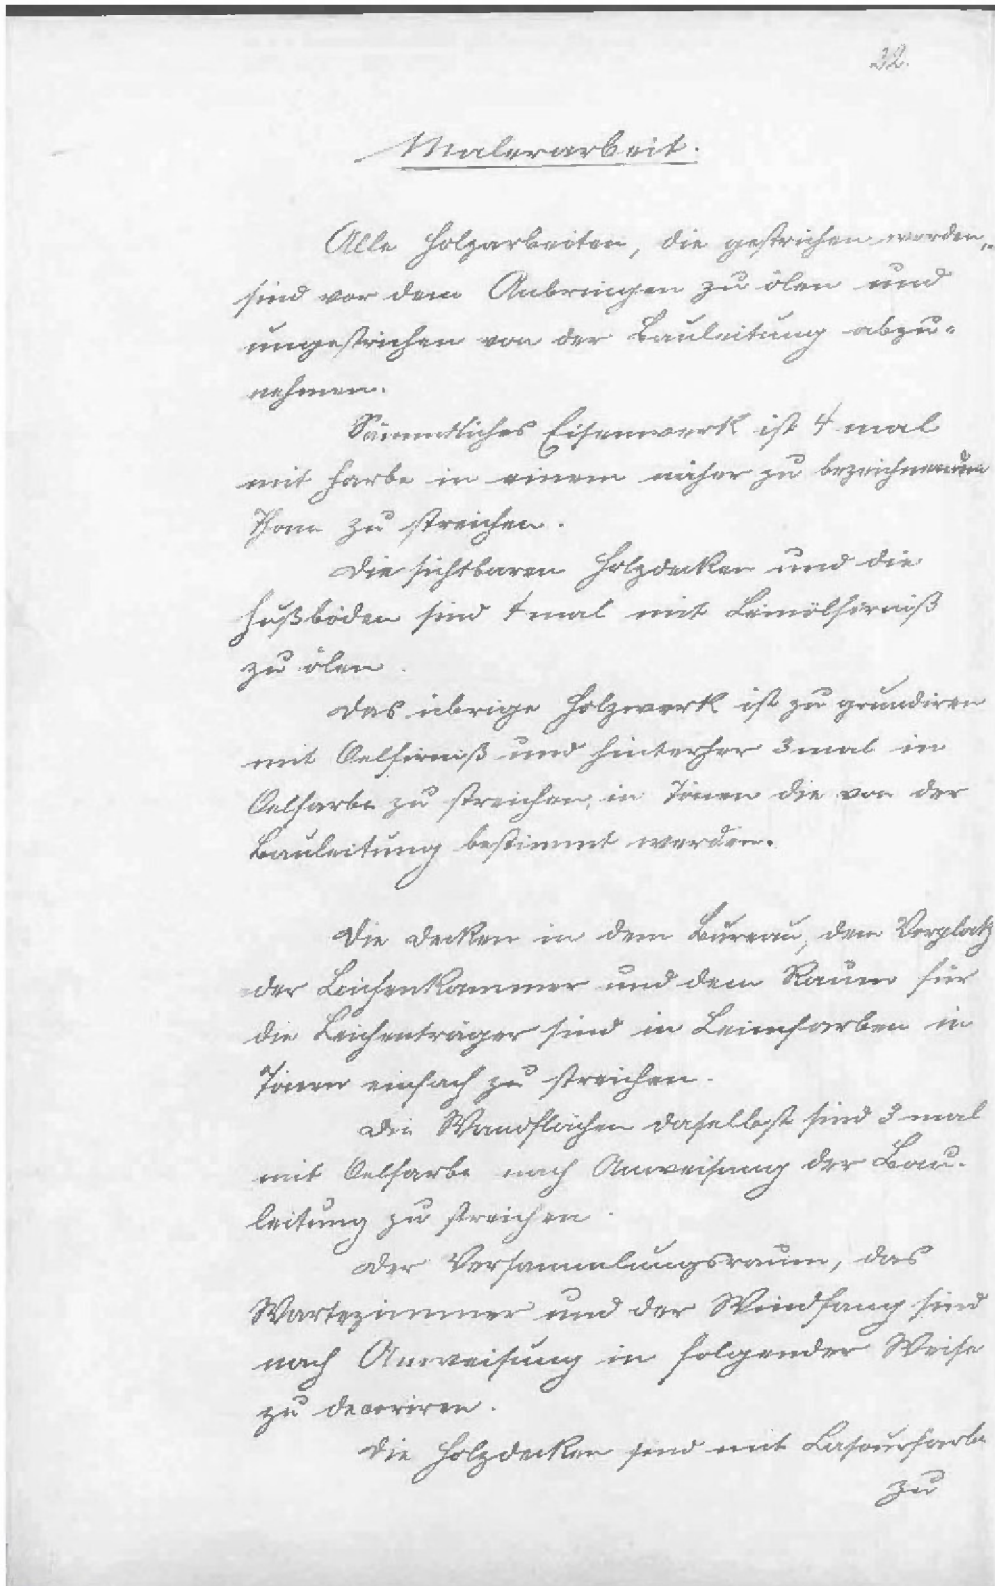 22.
Malerarbeit.
Alle Holzarbeiten, die gestrichen werden,
sind vor dem Anbringen zu ölen und
ungestrichen von der Bauleitung abzu-
nehmen.
Sämmtliches Eisenwerk ist 4 mal
mit Farbe in einem näher zu bezeichnenden
Thone zu streichen.
Die sichtbaren Holzdecken und die
Fußböden sind 4 mal mit Leinölfirniß
zu ölen.
Das übrige Holzwerk ist zu grundiren
mit Oelfirniß und hinterher 3 mal in
Oelfarbe zu streichen, in Tönen die von der
Bauleitung bestimmt werden.
Die Decken in dem Bureau, dem Vorplatz
der Leichenkammer und dem Raum für
die Leichenträger sind in Leimfarben in
Tönen einfach zu streichen.
Die Wandflächen daselbst sind 3 mal
mit Oelfarbe nach Anweisung der Bau-
leitung zu streichen.
Der Versammlungsraum, das
Wartezimmer und der Windfang sind
nach Anweisung in folgender Weise
zu decoriren.
Die Holzdecken sind mit Lasourfarbe
zu